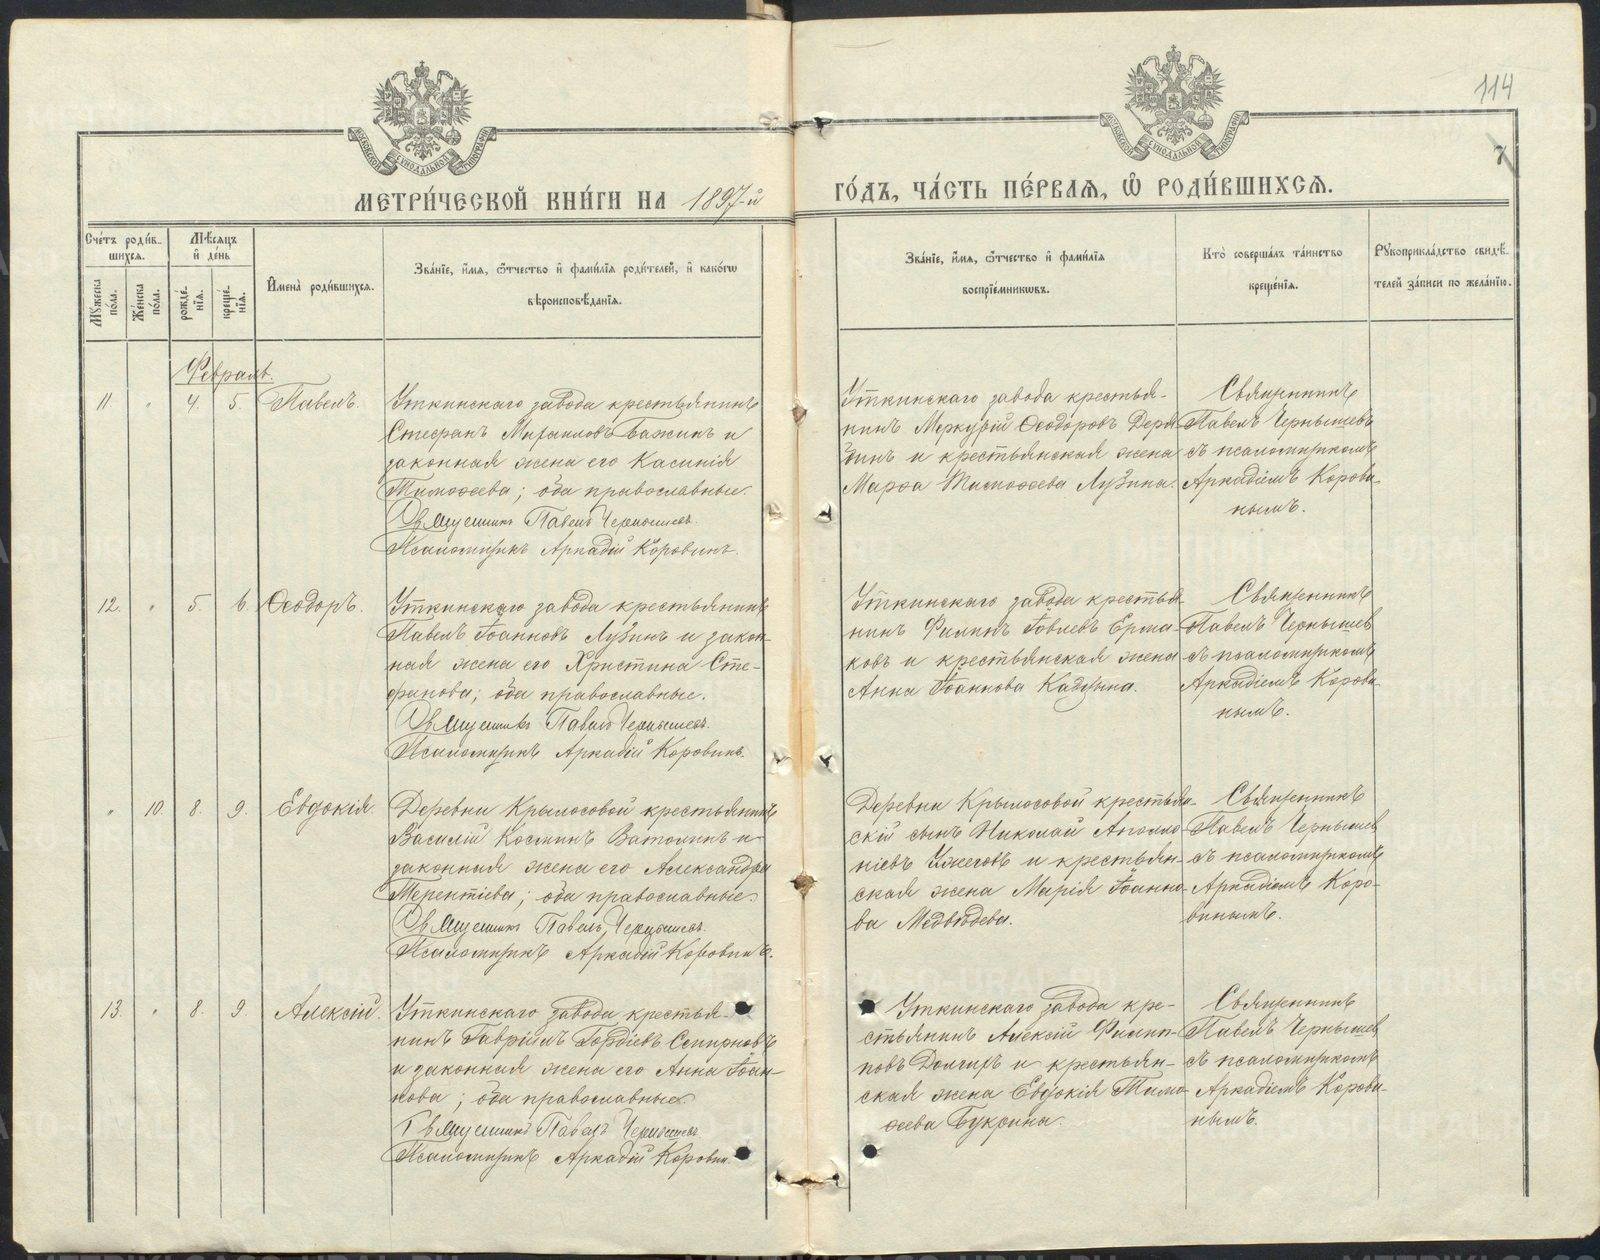 114
7
МОСКОВСКОЙ СѴНОДАЛЬНОЙ ТИПОГРАФІИ
МОСКОВСКОЙ СѴНОДАЛЬНОЙ ТИПОГРАФІИ
МЕТРИ́ЧЕСКОЙ КНИ́ГИ НА 1897-й
ГО́ДЪ, ЧА́СТЬ ПЕ́РВАѦ, Ѽ РОДИ́ВШИХСѦ.
Сче́тъ роди́в-
шихсѧ.
Мѣ́сѧцъ
и҆ де́нь
Мꙋ́жеска
по́ла.
Же́нска
по́ла.
рожде-
нїѧ.
креще́-
нїѧ.
И҆мена̀ роди́вшихсѧ.
Зва́нїе, и҆́мѧ, ѻ҆́тчество и҆ фами́лїѧ роди́телей, и҆ како́гѡ
вѣроисповѣ́данїѧ.
Зва́нїе, и҆́мѧ, ѻ҆́тчество и҆ фами́лїѧ
воспрїе́мникѡвъ.
Кто̀ соверша́лъ та́инство
креще́нїѧ.
Рꙋкоприкла́дство свидѣ́-
телей за́писи по жела́нїю.
Февраль.
11. " 4. 5. Павелъ.
Уткинскаго завода крестьянинъ
Стефанъ Михаиловъ Бажинъ и
законная жена его Касинія
Тимоѳеева; оба православные.
Священникъ Павелъ Чернышевъ.
Псаломщикъ Аркадій Коровинъ.
Уткинскаго завода крестья-
нинъ Меркурій Ѳеодоровъ
и крестьянская жена
Марѳа Тимоѳеева Лузина.
Священникъ
Павелъ Чернышевъ
съ псаломщикомъ
Аркадіемъ Корови-
нымъ.
12. " 5. 6. Ѳеодоръ.
Уткинскаго завода крестьянинъ
Павелъ Іоанновъ Лузинъ и закон-
ная жена его Христина Сте-
фанова; оба православные.
Священникъ Павелъ Чернышевъ.
Псаломщикъ Аркадій Коровинъ.
Уткинскаго завода крестья-
нинъ Филипъ Іовлевъ Ерма-
ковъ и крестьянская жена
Анна Іоаннова
Священникъ
Павелъ Чернышев
съ псаломщикомъ
Аркадіемъ Корови-
нымъ.
" 10. 8. 9. Евдокія.
Деревни Крылосовой крестьянинъ
Василій Косминъ Ватолинъ и
законная жена его Александра
Терентіева; оба православные.
Священникъ Павелъ Чернышевъ.
Псаломщикъ Аркадій Коровинъ.
Деревни Крылосовой крестьян-
скій сынъ Николай Аполло-
ніевъ Ужеговъ и крестьян-
ская жена Марія Іоанно-
ва Медвѣдева.
Священникъ
Павелъ Чернышев
съ псаломщикомъ
Аркадіемъ Коро-
винымъ.
13. " 8. 9. Алексій.
Уткинскаго завода крестья-
нинъ Гавріилъ Гордіевъ Смирновъ
и законная жена его Анна Іоан-
нова; оба православные.
Священникъ Павелъ Чернышев
Псаломщикъ Аркадій Коровин.
Уткинскаго завода кре-
стьянинъ Алексій Филип-
повъ Долгихъ и крестьян-
ская жена Евдокія Тимо-
ѳеева Букрина.
Священникъ
Павелъ Чернышев
съ псаломщикомъ
Аркадіемъ Корови-
нымъ.